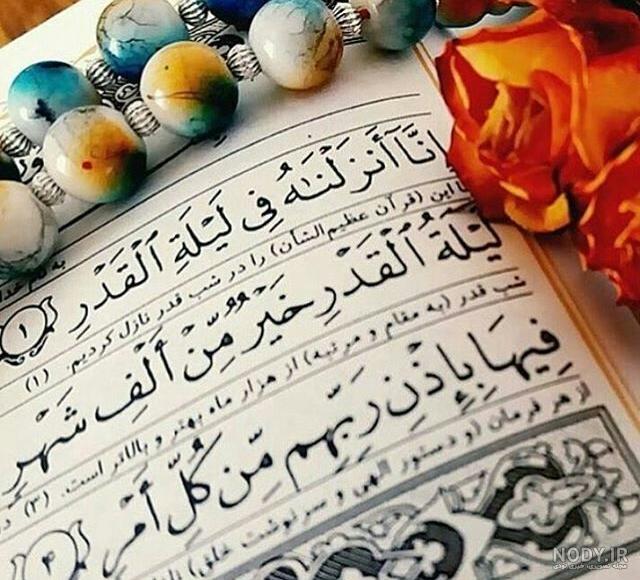 إِنَّا أَنزَلْنَٰهُ فِی لَیْلَةِ ٱلْقَدْرِ ۝١
این (قرآن عظیم‌الشأن) را در شب قدر نازل کردیم. (۱)
لَیْلَةُ ٱلْقَدْرِ خَیْرٌ مِّنْ أَلْفِ شَهْرٍ
شب قدر (به مقام و مرتبه) از هزار ماه بهتر و بالاتر است. (۳)
فِیهَا بِإِذْنِ رَبِّهِم مِّن كُلِّ أَمْرٍ ۝٤
از هر فرمان (و دستور الهی و سرنوشت خلق)
NODY.IR